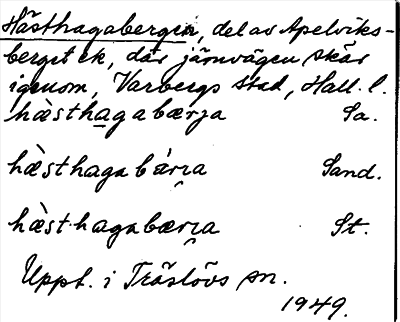 Hästhagabergen, del av Apelviks-
berget ek, där järnvägen skär
igenom, Varbergs stad, Hall. l.
hæ̀sthagabærja Sa.
hæ̀sthagabárja Sand.
hæ̀sthagabærja St.
Uppt. i Träslövs sn.
1949.